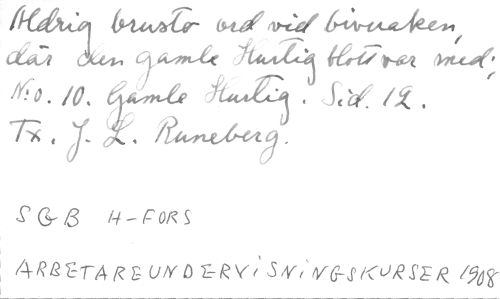 Aldrig brusto ord vid bivuaken,
där den gamle Hurtig blott var med;
N:o. 10. Gamle Hurtig. Sid. 12.
Tx. J. L. Runeberg.
SGB H-FORS
ARBETAREUNDERVISNINGSKURSER 1908